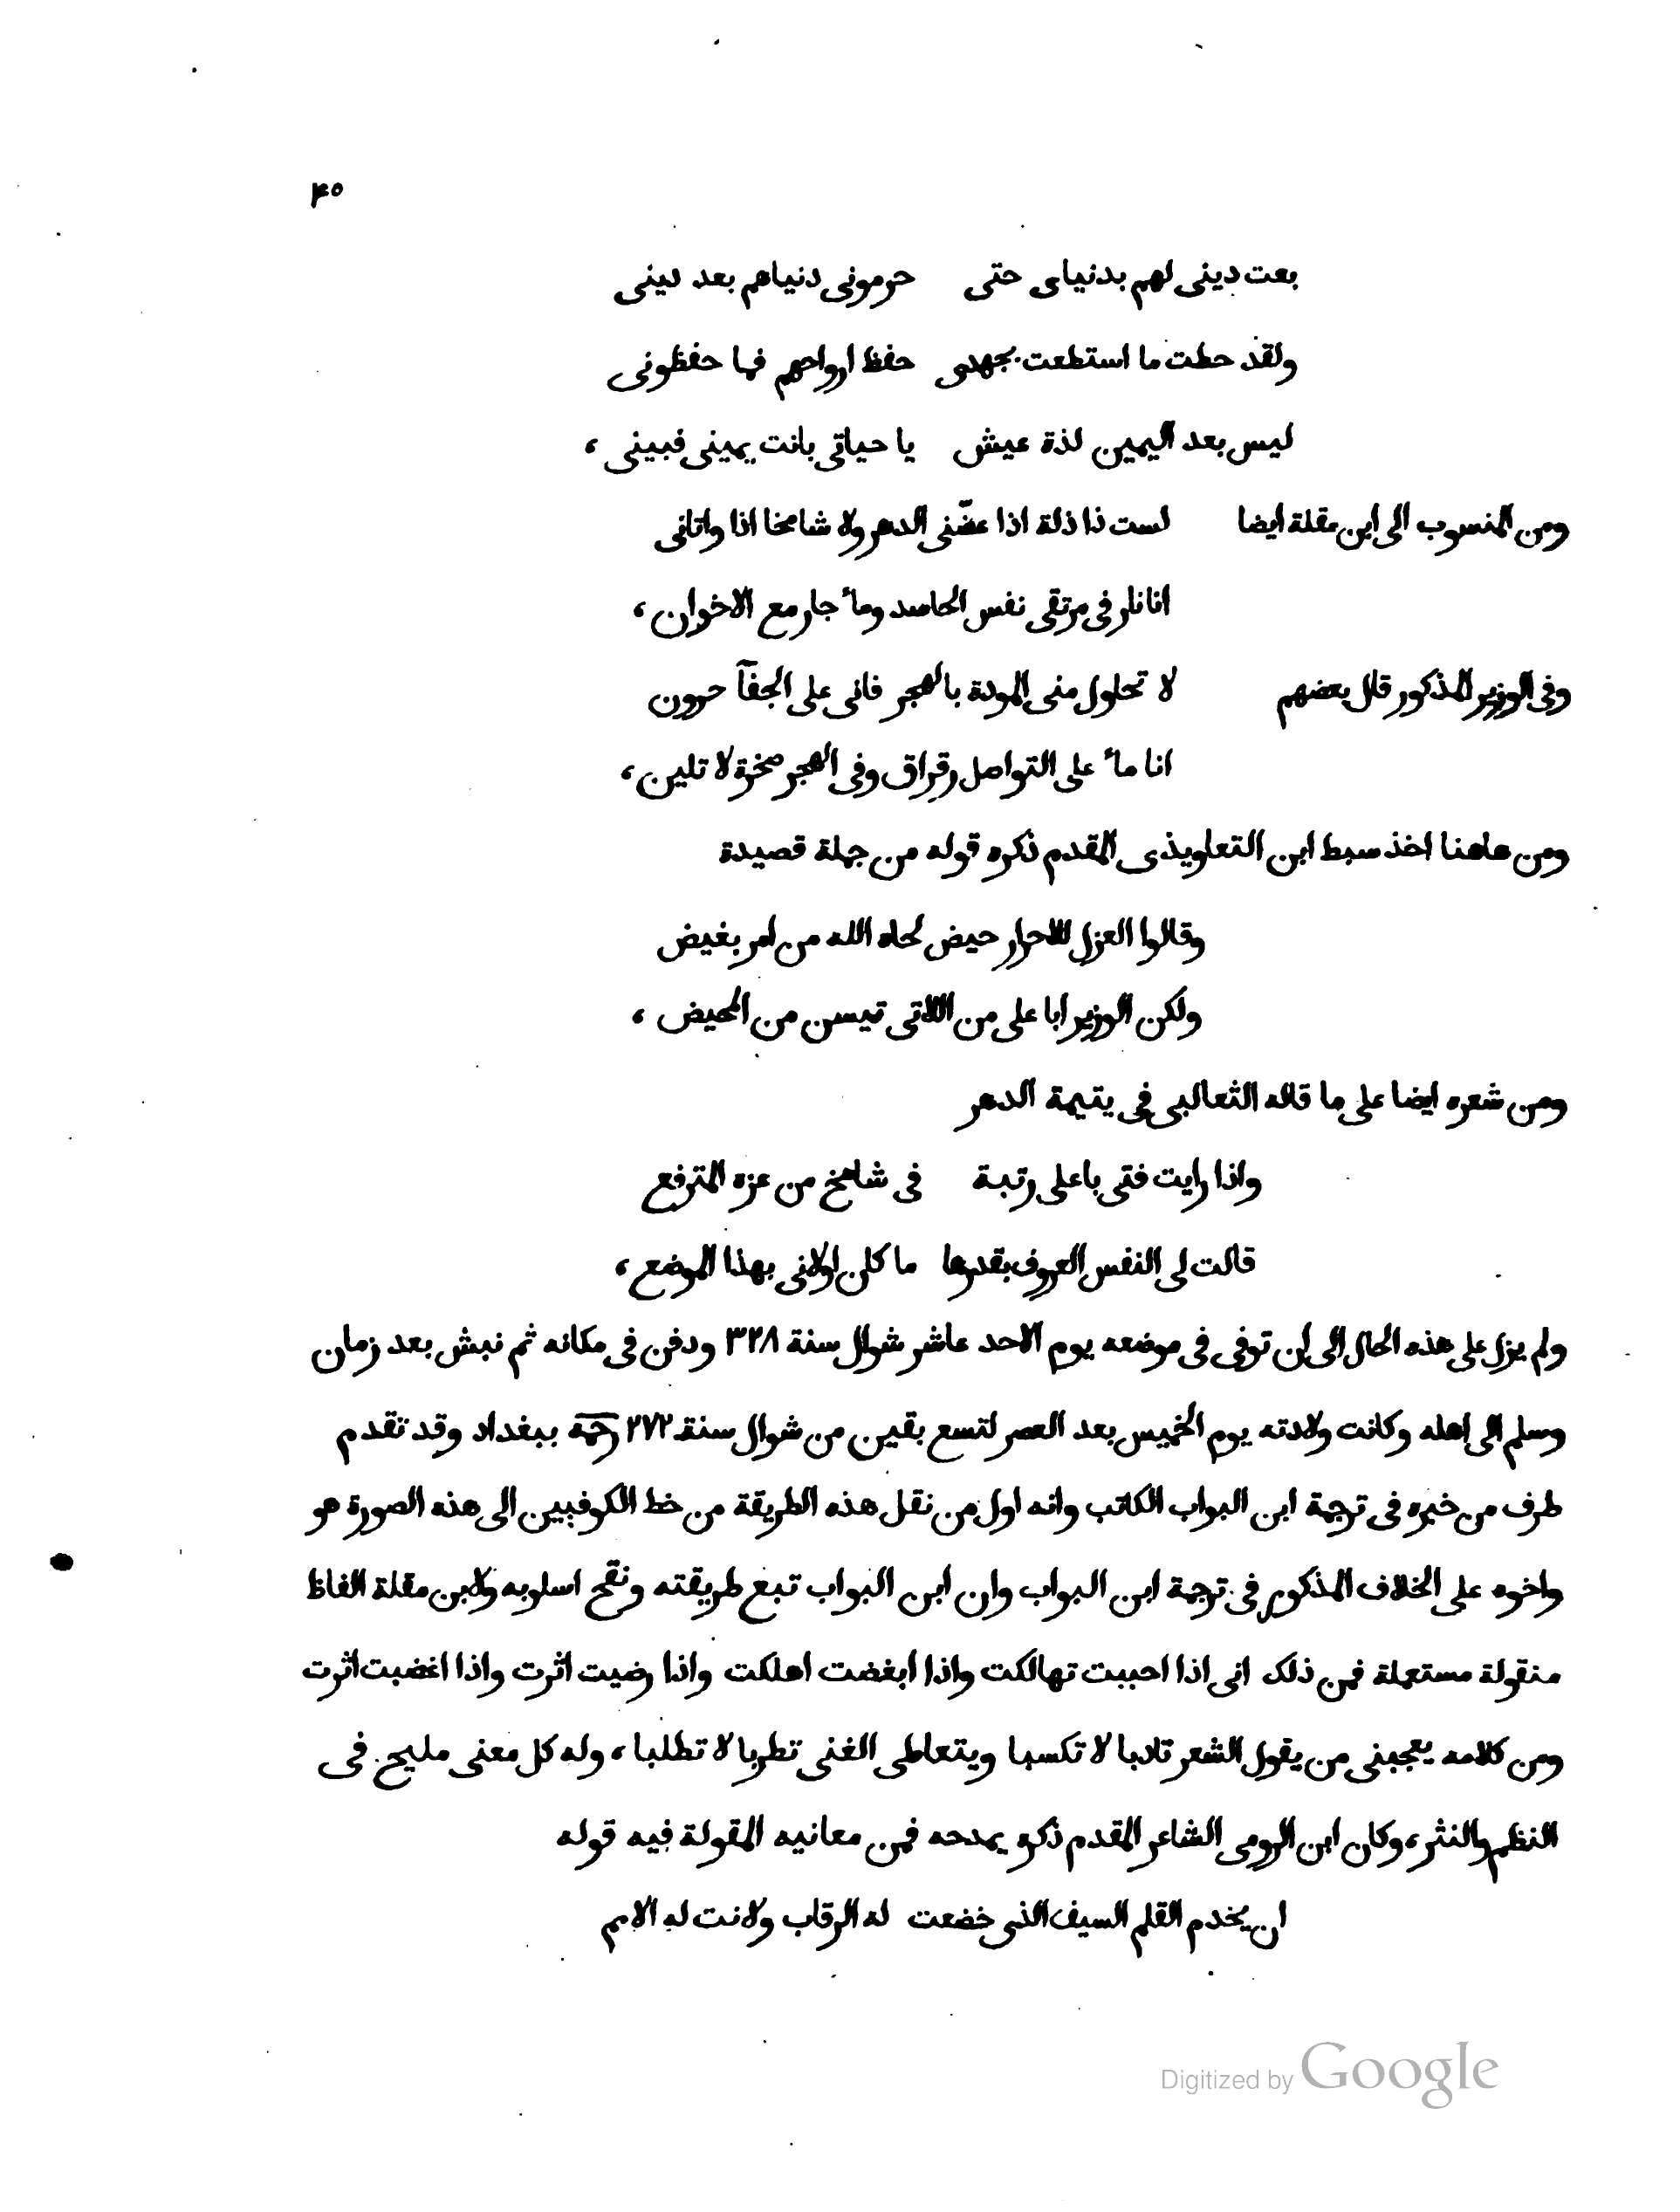 ٤٥
بعت دينى لهم بدنياى حتى حرمونى دنياهم بعد دينى
ولقد حطت ما استطعت بجهدى حفظ ارواحهم فما حفظونى
ليس بعد اليمين لذة عيش يا حياتى بانت يمينى فبينى ،
ومن المنسوب الى ابن مقلة ايضا لست ذا ذلة اذا عضّنى الدهر ولا شامخا اذا واتانى
انا نار فى مرتقى نفس الحاسد وماء جار مع الاخوان ،
وفى الوزير المذكور قال بعضهم لا تحاول منى المودة بالهجر فانى على الجفآ حرون
انا ماء على التواصل رقراق وفى الهجر صخرة لا تلين ،
ومن هاهنا اخذ سبط ابن التعاويذى المقدم ذكره قوله من جملة قصيدة
وقالوا العزل للاحرار حيض لحاه الله من امر بغيض
ولكن الوزير ابا على من اللاتى تيسن من المحيض ،
ومن شعره ايضا على ما قاله الثعالبى فى يتيمة الدهر
واذا رايت فتى باعلى رتبة فى شامخ من عزه المترفع
قالت لى النفس العروف بقدرها ما كان اولانى بهذا الموضع ،
ولم يزل على هذه الحال الى ان توفى فى موضعه يوم الاحد عاشر شوال سنة ٣٢٨ ودفن فى مكانه ثم نبش بعد زمان
وسلم الى اهله وكانت ولادته يوم الخميس بعد العصر لتسع بقين من شوال سنة ٢٧٢ رحمه ببغداد وقد تقدم
طرف من خبره فى ترجمة ابن البواب الكاتب وانه اول من نقل هذه الطريقة من خط الكوفيين الى هذه الصورة هو
واخوه على الخلاف المذكور فى ترجمة ابن البواب وان ابن البواب تبع طريقته ونقح اسلوبه ولابن مقلة الفاظ
منقولة مستعملة فمن ذلك انى اذا احببت تهالكت واذا ابغضت اهلكت واذا رضيت اثرت واذا اغضبت اثرت
ومن كلامه يعجبنى من يقول الشعر تادبا لا تكسبا ويتعاطى الغنى تطربا لا تطلبا ، وله كل معنى مليح فى
النظم والنثر ، وكان ابن الرومى الشاعر المقدم ذكره يمدحه فمن معانيه المقولة فيه قوله
ان يخدم القلم السيف الذى خضعت له الرقاب ولانت له الامم
Digitized by Google